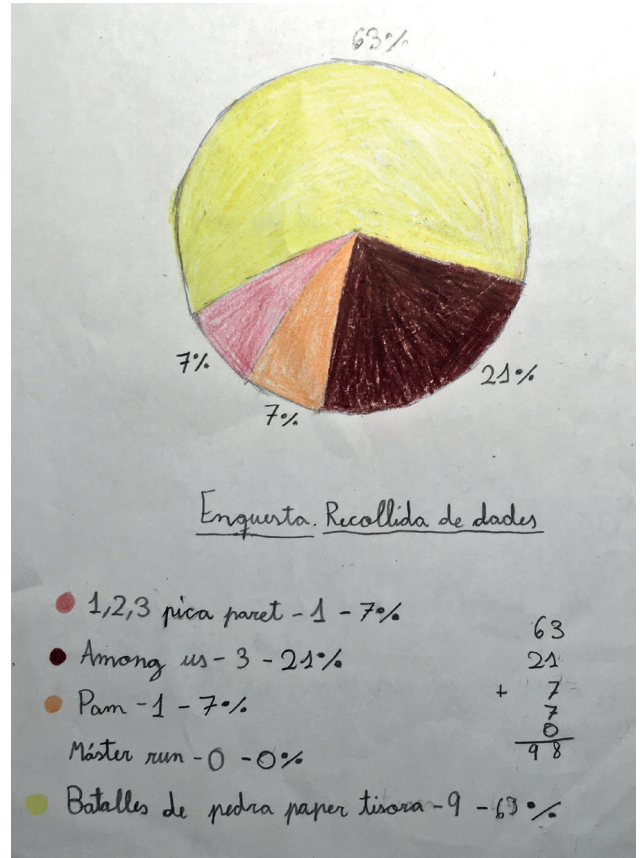 63%
7%
7%
21%
Enquesta. Recollida de dades
1,2,3 pica paret - 1 - 7%
Among us - 3 - 21%
Pam - 1 - 7%
Máster run - 0 - 0%
Batalles de pedra paper tisora - 9 - 63%
63
21
+ 7
7
0
98